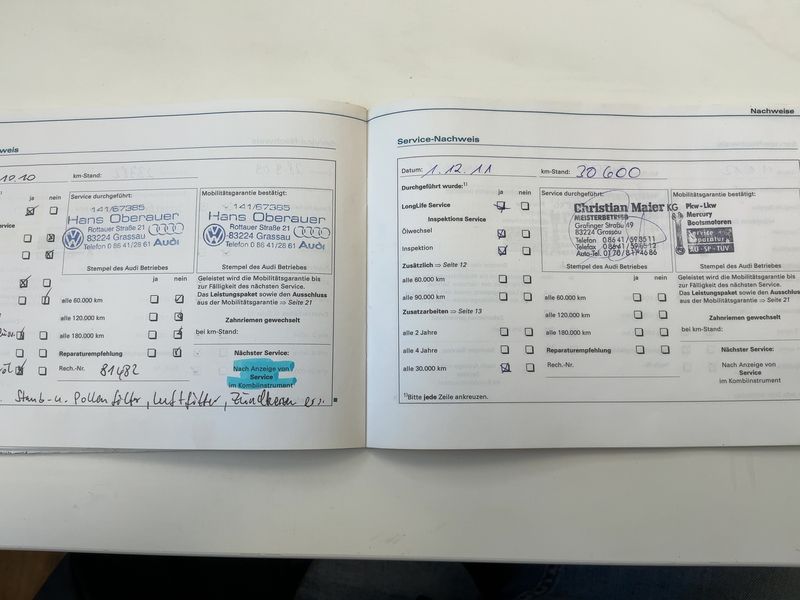 weis
10.10
km-Stand:
ja nein
Service durchgeführt:
141/67385
Hans Oberauer
Rottauer Straße 21
83224 Grassau
Telefon 0 86 41/28 61 Audi
Stempel des Audi Betriebes
Mobilitätsgarantie bestätigt:
141/67385
Hans Oberauer
Rottauer Straße 21
83224 Grassau
Telefon 0 86 41/28 61 Audi
Stempel des Audi Betriebes
ervice
ja nein
alle 60.000 km
alle 120.000 km
alle 180.000 km
Reparaturempfehlung
Rech.-Nr. 81482
Geleistet wird die Mobilitätsgarantie bis
zur Fälligkeit des nächsten Service.
Das Leistungspaket sowie den Ausschluss
aus der Mobilitätsgarantie ⇒ Seite 21
Zahnriemen gewechselt
bei km-Stand:
Nächster Service:
Nach Anzeige von
Service
im Kombiinstrument
Staub-u. Pollenfilter, Luftfilter, Zündkerzen ers.
Nachweise
Service-Nachweis
Datum: 1.12.11
km-Stand: 30600
Durchgeführt wurde:1)
ja nein
LongLife Service
Inspektions Service
Ölwechsel
Inspektion
Zusätzlich ⇒ Seite 12
alle 60.000 km
alle 90.000 km
Zusatzarbeiten ⇒ Seite 13
alle 2 Jahre
alle 4 Jahre
alle 30.000 km
1)Bitte jede Zeile ankreuzen.
Service durchgeführt:
Christian Maier KG
MEISTERBETRIEB
Grafinger Straße 49
83224 Grassau
Telefon 08641/59 35 11
Stempel des Audi Betriebes
Mobilitätsgarantie bestätigt:
Pkw-Lkw
Mercury
Bootsmotoren
Service
Reparatur
AU-SP-TÜV
Stempel des Audi Betriebes
ja nein
alle 60.000 km
alle 120.000 km
alle 180.000 km
Reparaturempfehlung
Rech.-Nr.
Geleistet wird die Mobilitätsgarantie bis
zur Fälligkeit des nächsten Service.
Das Leistungspaket sowie den Ausschluss
aus der Mobilitätsgarantie ⇒ Seite 21
Zahnriemen gewechselt
bei km-Stand:
Nächster Service:
Nach Anzeige von
Service
im Kombiinstrument